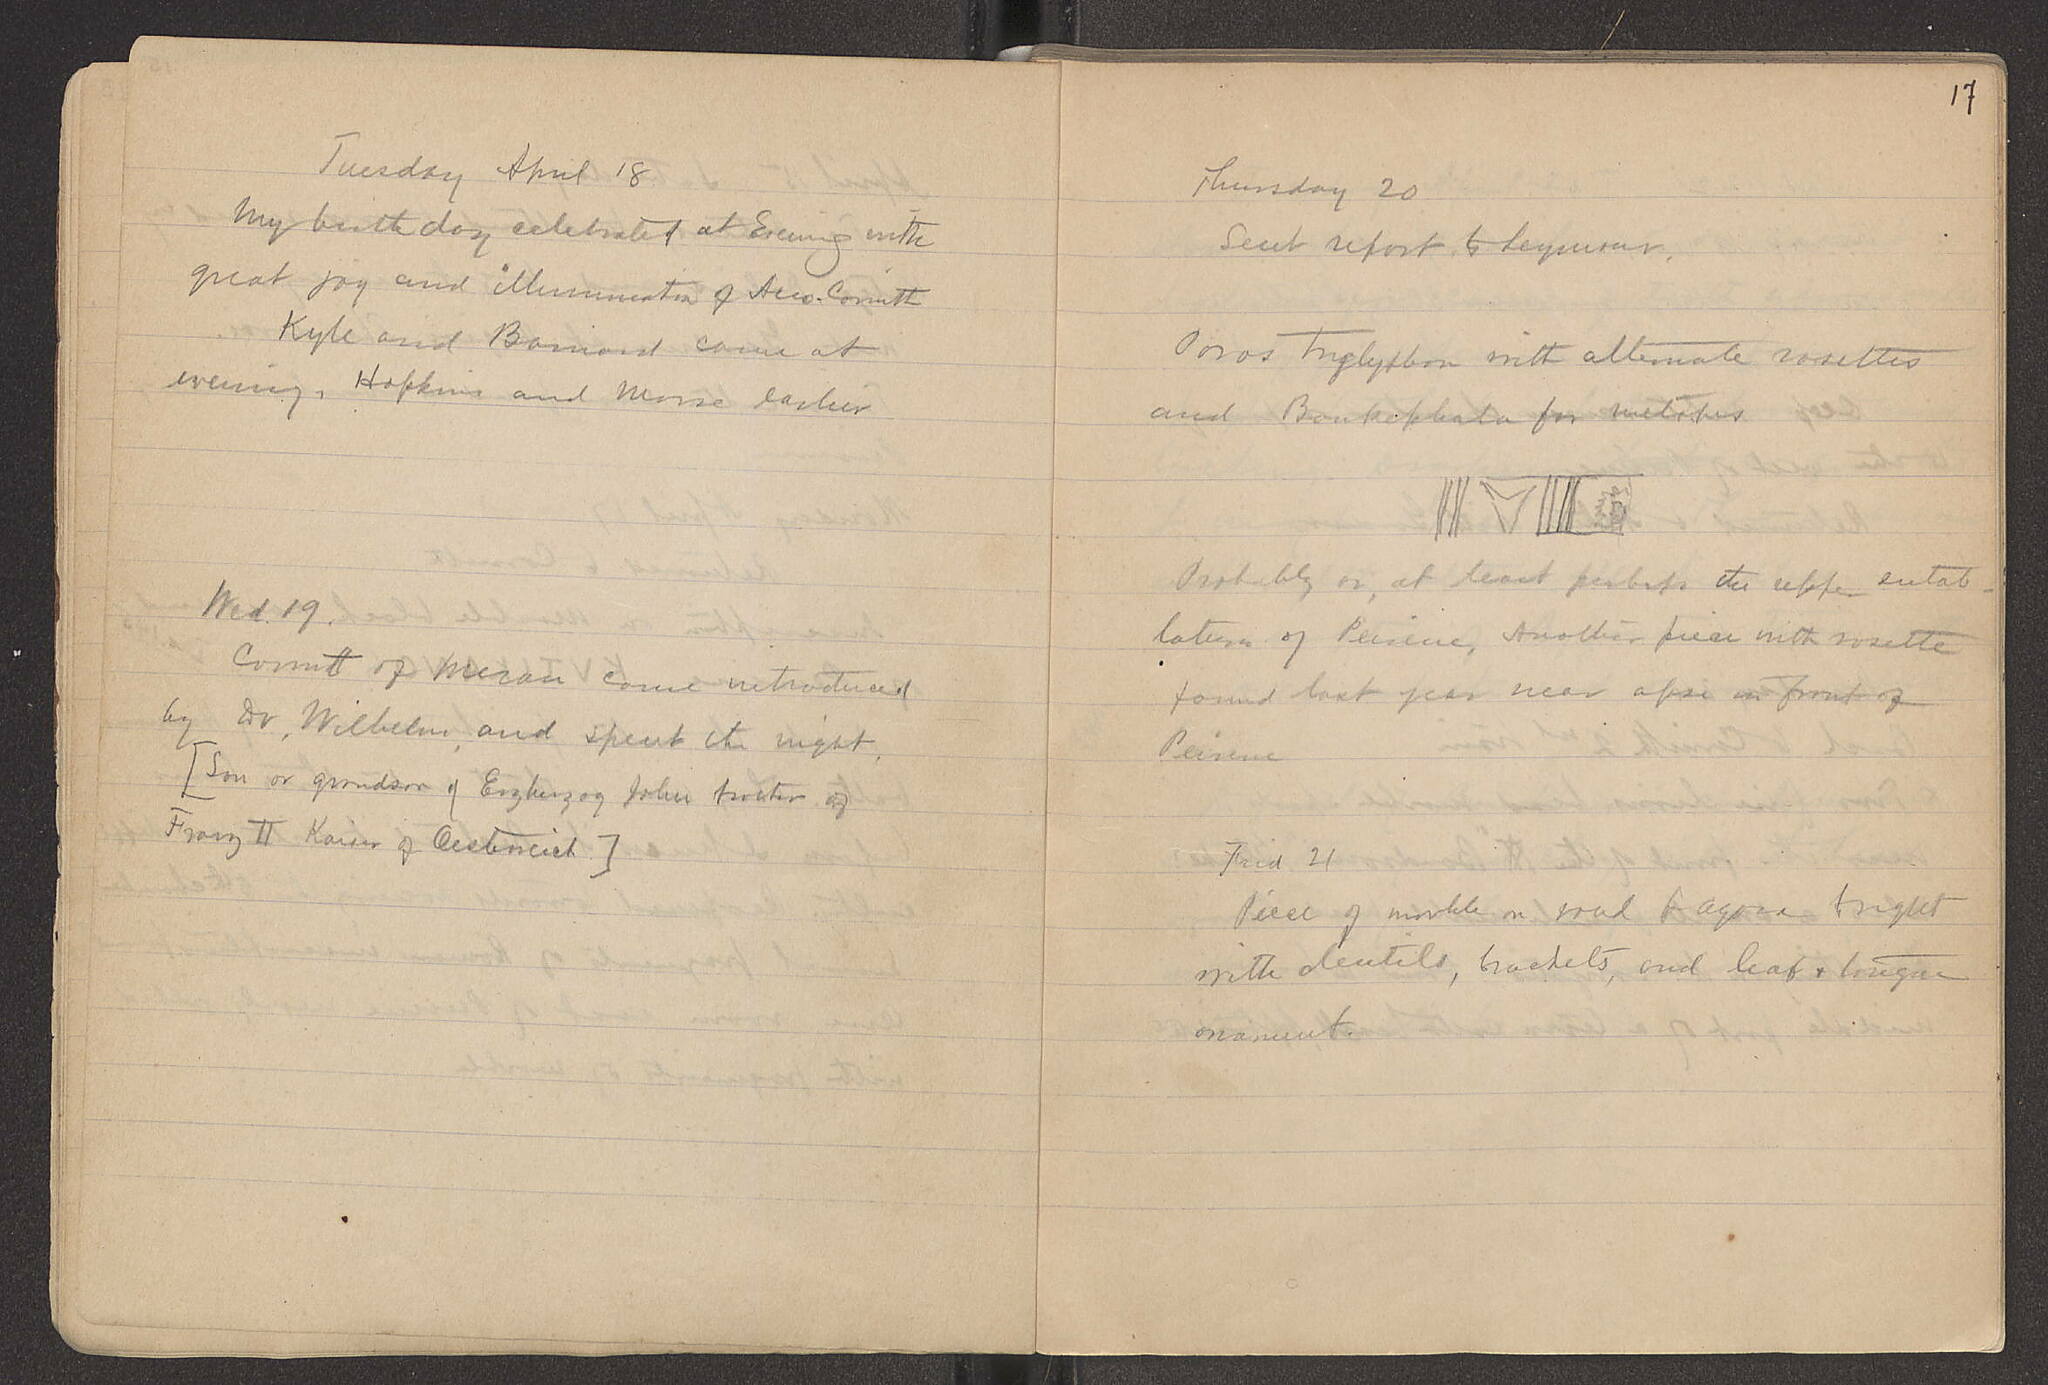 Tuesday April 18
My birth day celebrated at Evening with
great joy and illumination of Acro-Corinth
Kyle and Barnard came at
evening, Hopkins and Morse earlier
Wed. 19.
Count of Meran came introduced
by Dr. Wilhelm, and spent the night.
[Son or grandson of Erzherzog John brother of
Franz II Kaiser of Oesterreich]
17
Thursday 20
Sent report to Seymour.
Poros Triglyphon with alternate rosettes
and Boukephala for metopes
Probably or, at least perhaps the upper entab-
lature of Peirene, Another piece with rosette
found last year near apse in front of
Peirene
Frid 21
Piece of marble on road to agora bright
with dentils, brackets, and leaf + tongue
ornament.